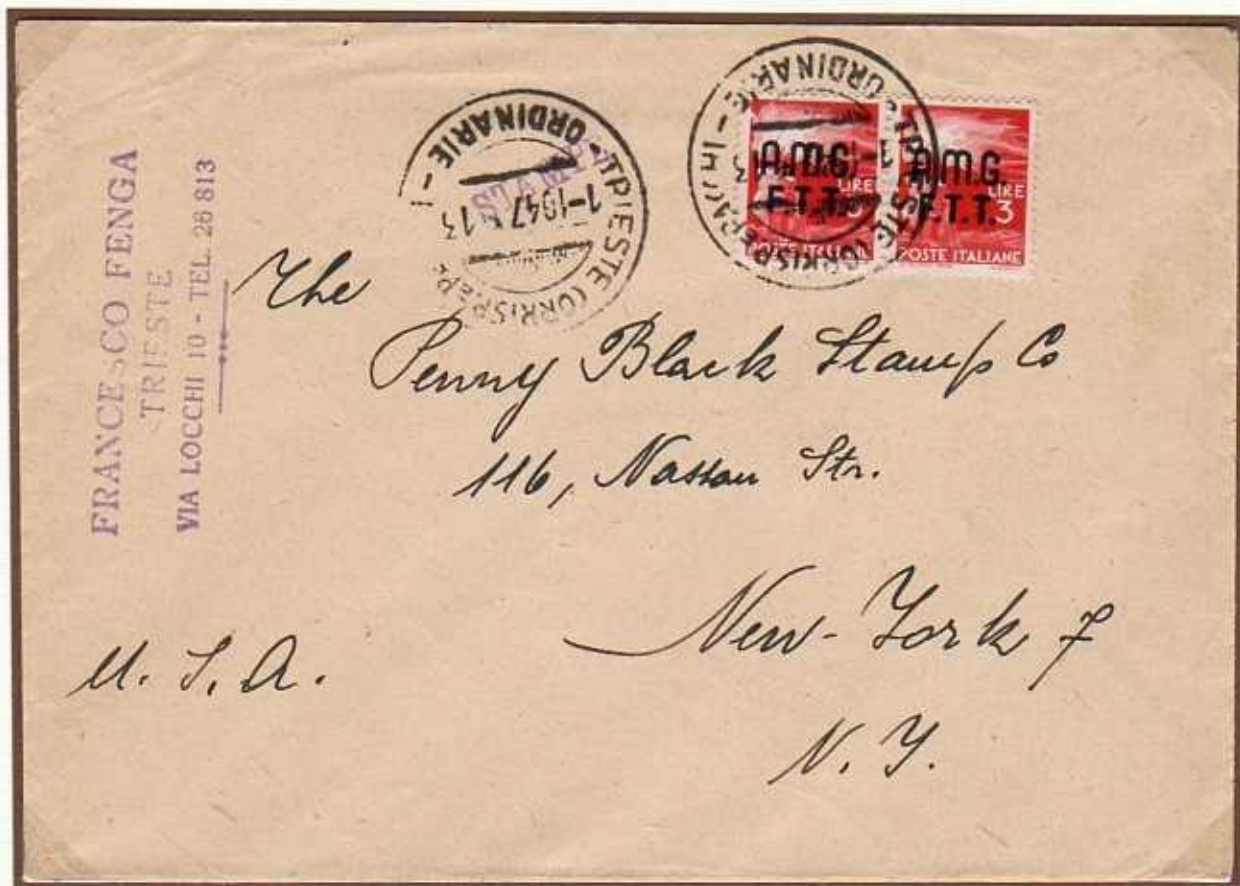 FRANCESCO FENGA
TRIESTE
VIA LOCCHI 10 - TEL. 26 813
TRIESTE CORRISP.
ORDINARIE - 1
1-1947 13
TRIESTE CORRISP.
ORDINARIE - 1
A.M.G.
F.T.T.
LIRE
3
POSTE ITALIANE
A.M.G
F.T.T.
LIRE
3
POSTE ITALIANE
The
Penny Black Stamp Co
116, Nassau Str.
New-York 7
N. Y.
U. S. A.